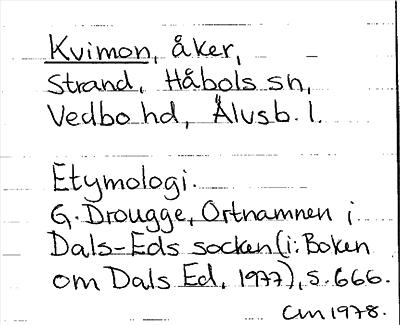 Kvimon, åker,
Strand, Håbols sn,
Vedbo hd, Älvsb. l.
Etymologi.
G. Drougge, Ortnamnen i
Dals-Eds socken (i: Boken
om Dals Ed, 1977), s. 666.
CM 1978.